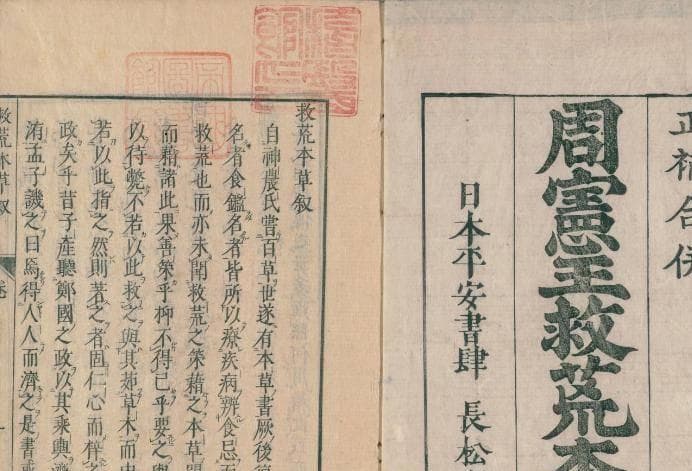 正補合併
周憲王救荒本
日本平安書肆 長松
救荒本草叙
自神農氏嘗百草世遂有本草書厥後
名者食鑑名者皆所以療疾病辨食忌而
救荒也而亦未聞救荒之策藉之本草
而精諸此果善策乎抑不得已乎要之與
以待斃不若以此救之與其茹草木而
若以此指之然則若之者固仁心而
政矣乎昔子產聽鄭國之政以其乘輿
洧孟子譏之曰焉得人人而濟之是書
救荒本草叙